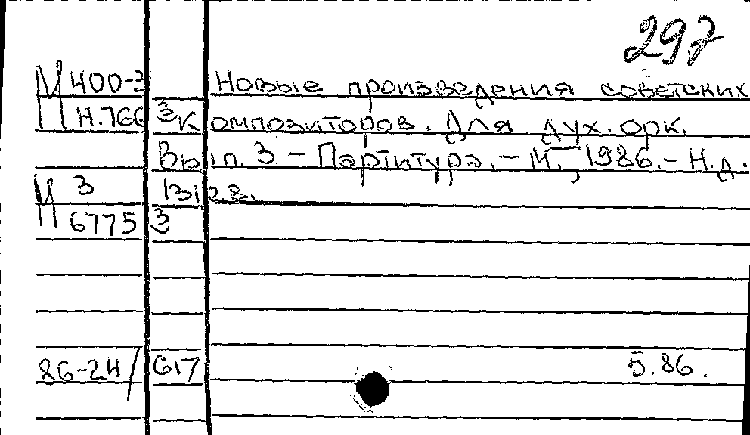 297
М 400-3 Новые произведения советских
Н.766 3 композиторов. Для дух. орк.
Вып. 3 – Партитура. – М., 1986. – Н.д.:
М 3
6775 3
86-24/617 5.86.